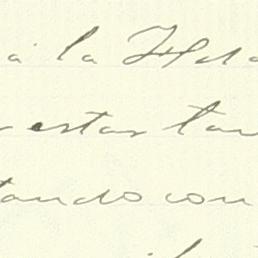 a la
estar tan
tando con